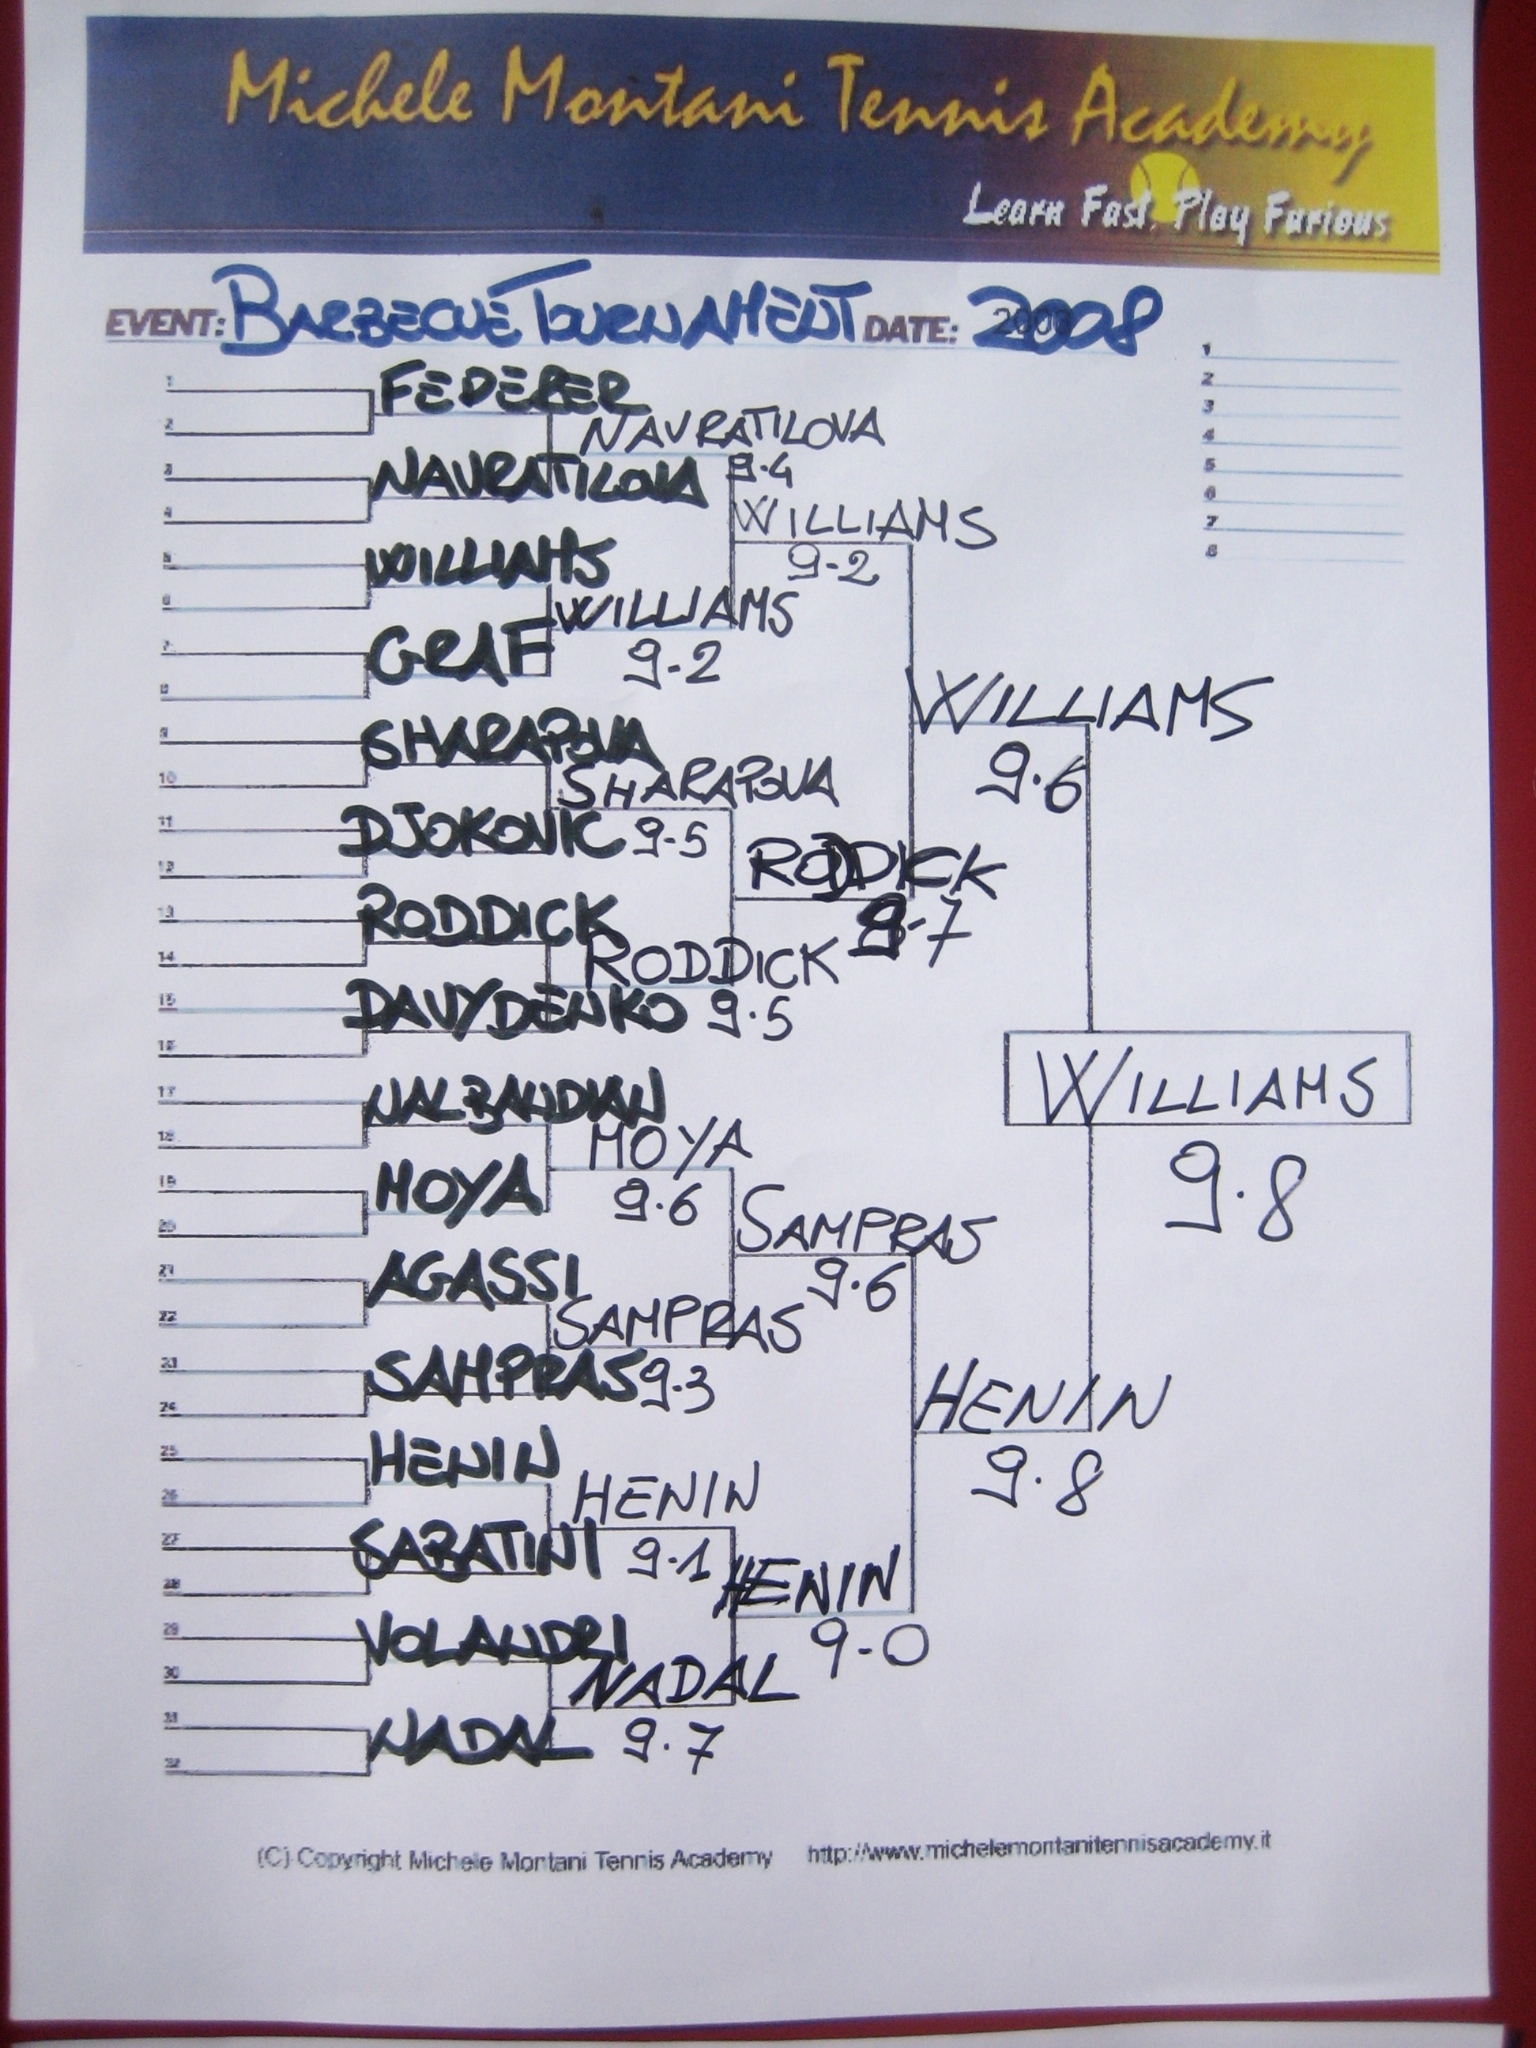 Michele Montani Tennis Academy
Learn Fast, Play Furious
EVENT: BARBECUE TOURNAMENT DATE: 2008
1
2
3
4
5
6
7
8
1
2
3
4
5
6
7
8
9
10
11
12
13
14
15
16
17
18
19
20
21
22
23
24
25
26
27
28
29
30
31
32
FEDERER
NAVRATILOVA
WILLIAMS
GRAF
SHARAPOVA
DJOKOVIC
RODDICK
DAVYDENKO
NALBANDIAN
MOYA
AGASSI
SAMPRAS
HENIN
SABATINI
VOLANDRI
NADAL
NAVRATILOVA
9.4
WILLIAMS
9-2
SHARAPOVA
9-5
RODDICK
9.5
MOYA
9.6
SAMPRAS
9.3
HENIN
9.1
NADAL
9.7
WILLIAMS
9-2
RODDICK
9-7
SAMPRAS
9.6
HENIN
9-0
WILLIAMS
9.6
HENIN
9.8
WILLIAMS
9.8
(C) Copyright Michele Montani Tennis Academy http://www.michelemontanitennisacademy.it